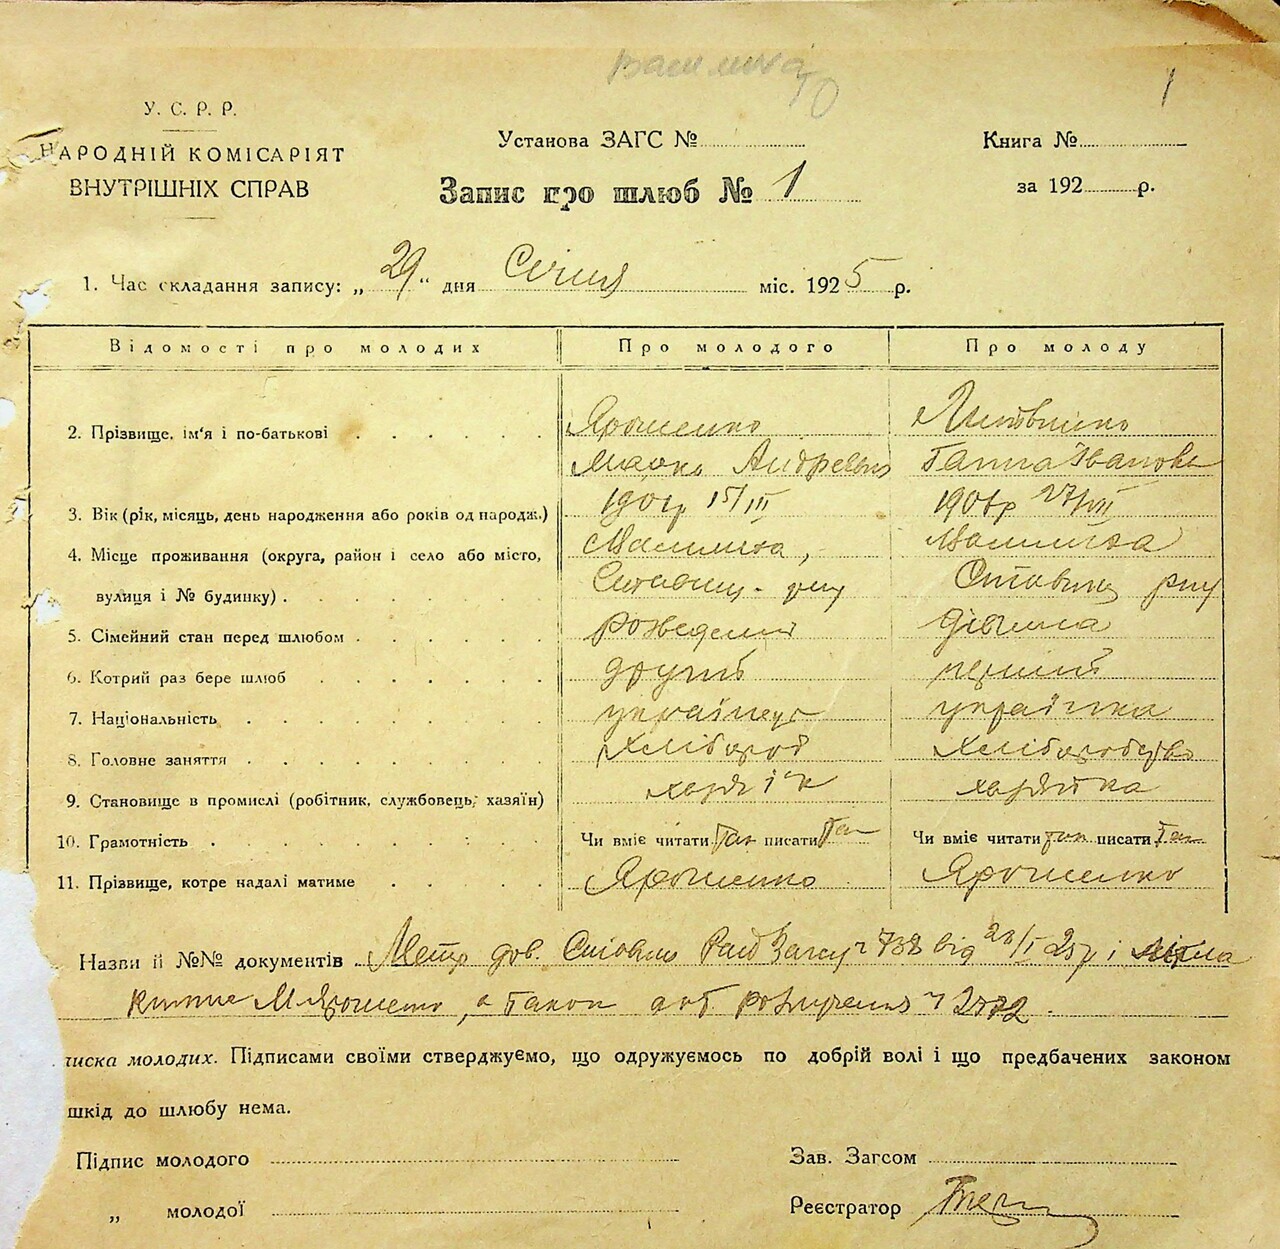 1
У. С. Р. Р.
НАРОДНІЙ КОМІСАРІЯТ
ВНУТРІШНІХ СПРАВ
Установа ЗАГС №
Книга №
Запис про шлюб № 1
за 192 р.
1. Час складання запису: „ 29 “ дня Січня міс. 1925 р.
Відомості про молодих Про молодого Про молоду
2. Прізвище, ім'я і по-батькові Ярошенко
Ганна Івановна
3. Вік (рік, місяць, день народження або років од народж.) 15/III 27/VII
4. Місце проживання (округа, район і село або місто,
вулиця і № будинку)
5. Сімейний стан перед шлюбом розведений дівчина
6. Котрий раз бере шлюб другий перший
7. Національність українець українка
8. Головне заняття хлібороб хліборобство
9. Становище в промислі (робітник, службовець, хазяїн) хазяїн хазяйка
10. Грамотність Чи вміє читати так писати так Чи вміє читати так писати так
11. Прізвище, котре надалі матиме Ярошенко Ярошенко
Назви її №№ документів дов. Загсу 738 від 28/I 25 р і
М. Ярошенко, а також акт
иска молодих. Підписами своїми стверджуємо, що одружуємось по добрій волі і що предбачених законом
шкід до шлюбу нема.
Підпис молодого Зав. Загсом
„ молодої Реєстратор